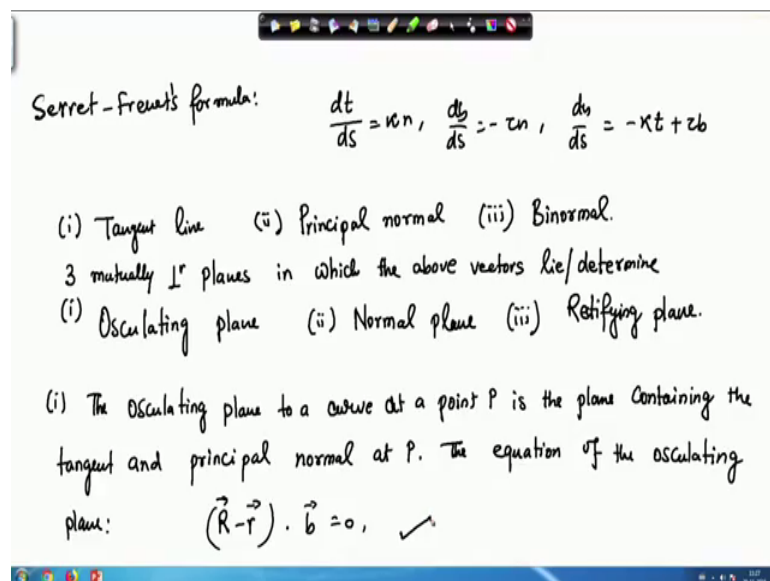 Serret-Frenet's formula: dt/ds = κn, db/ds = -τn, dn/ds = -κt + τb
(i) Tangent line (ii) Principal normal (iii) Binormal.
3 mutually ⊥r planes in which the above vectors lie/determine
(i) Osculating plane (ii) Normal plane (iii) Retifying plane.
(i) The osculating plane to a curve at a point P is the plane containing the
tangent and principal normal at P. The equation of the osculating
plane: (R⃗-r⃗) . b⃗ = 0,